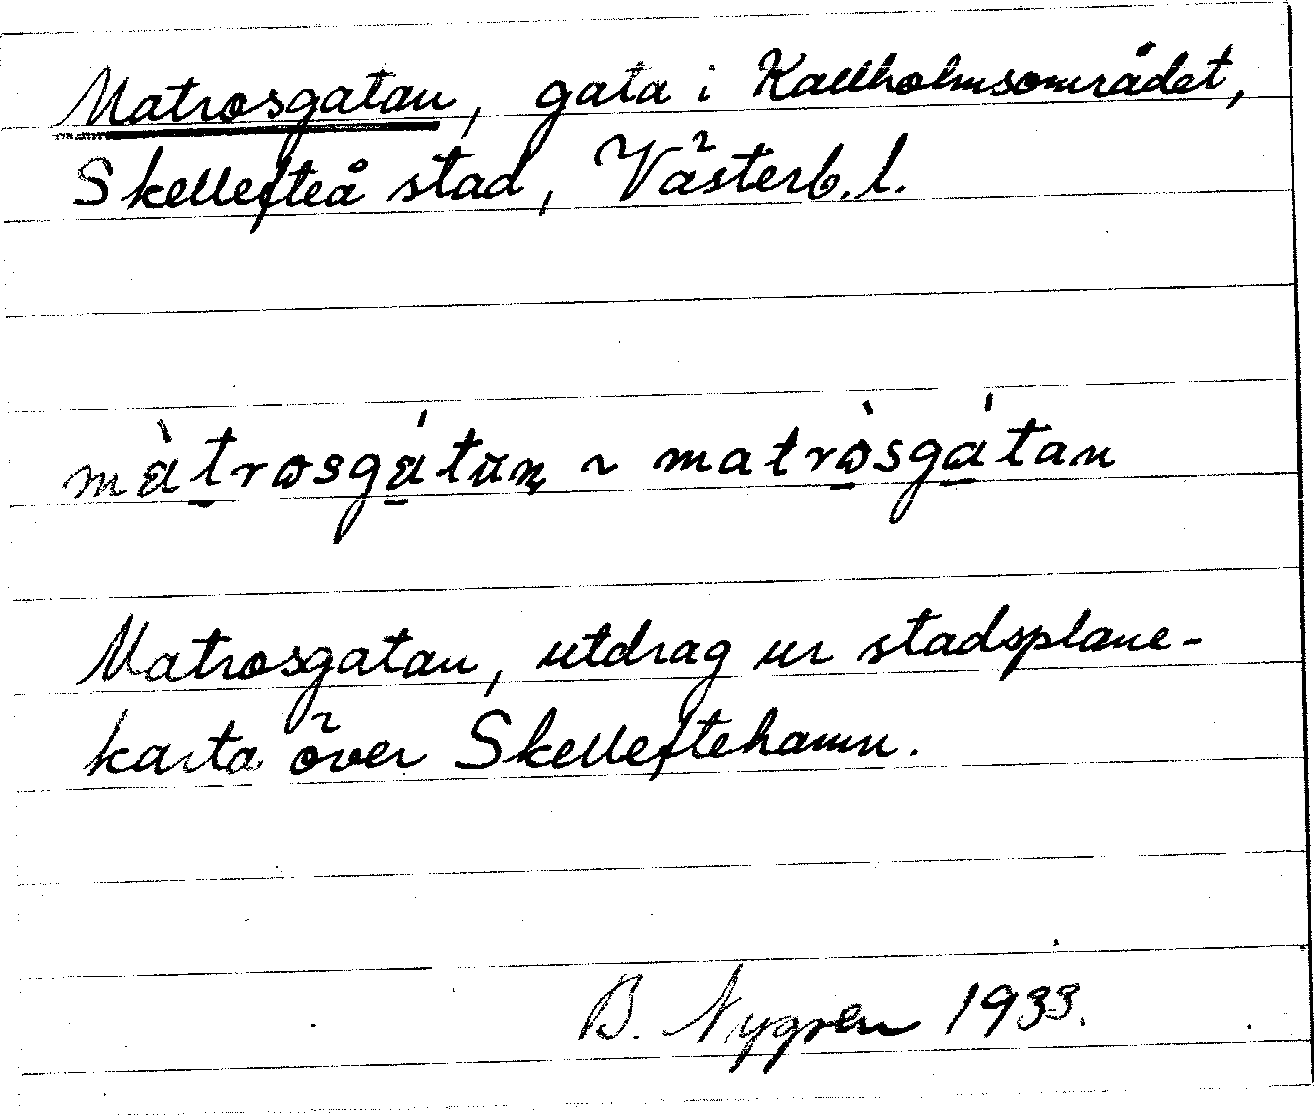 Matrosgatan, gata i Kallholmsområdet,
Skellefteå stad, Västerb. l.
màtrosgátan ~ matròsgátan
Matrosgatan, utdrag ur stadsplane-
karta över Skelleftehamn.
B. Nygren 1933.